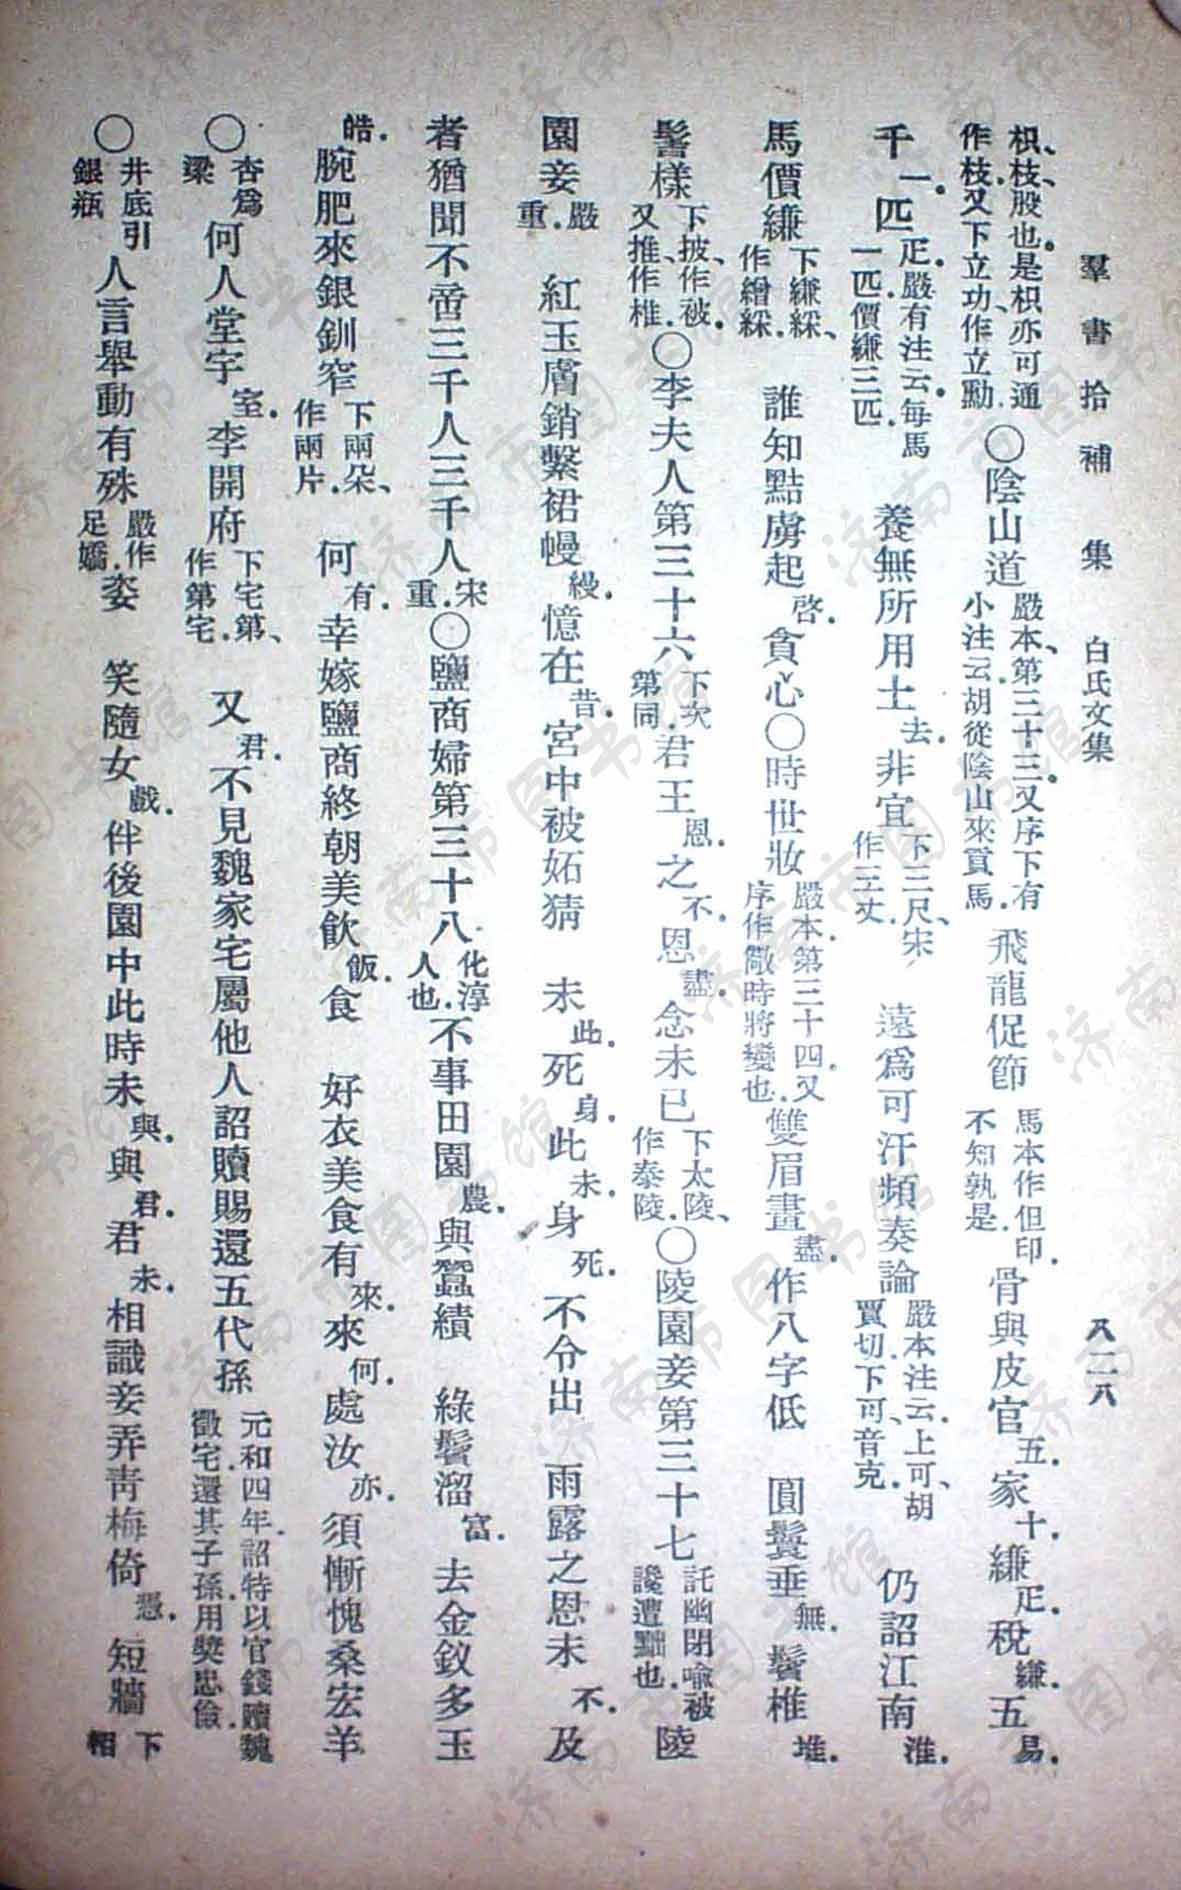 羣書拾補集　白氏文集　八二八
枳、枝、股也。是枳亦可通作枝。又下立功、作立勳。○陰山道嚴本、第三十三。又序下有小注云。胡從陰山來貢馬。飛龍促節馬本作但印。不知孰是。骨與皮官五。家十。縑疋。稅縑。五易。
千一。匹疋。嚴有注云。每馬一匹。價縑三匹。養無所用土去。非宜下二尺、宋作三丈。遠爲可汗頻奏論嚴本注云。上可、胡賈切。下可、音克。仍詔江南淮。
馬價縑下縑綵、作繒綵。誰知黠虜起啓。貪心○時世妝嚴本。第三十四。又序作儆時將變也。雙眉畫盡。作八字低　圓鬟垂無。鬢椎堆。
髻樣下披、作被。又推、作椎。○李夫人第三十六下次第同。君王恩。之不。恩盡。念未已下太陵、作泰陵。○陵園妾第三十七託幽閉喻被讒遭黜也。陵
園妾嚴重。紅玉膚銷繫裙幔縵。憶在昔。宮中被妬猜　未此。死身。此未。身死。不令出　雨露之恩未不。及
者猶聞不啻三千人三千人宋重。○鹽商婦第三十八。化淳人也。不事田園農。與蠶績　綠鬢溜富。去金釵多玉
皓。腕肥來銀釧窄下兩朵、作兩片。何有。幸嫁鹽商終朝美飲飯。食　好衣美食有來。來何。處汝亦。須慚愧桑宏羊
○杏爲梁何人堂宇室。李開府下宅第、作第宅。又君。不見魏家宅屬他人詔贖賜還五代孫元和四年。詔特以官錢贖魏徵宅。還其子孫。用奬忠儉。
○井底引銀瓶人言舉動有殊嚴作足嬌。姿　笑隨女戲。伴後園中此時未與。與君。君未。相識妾弄靑梅倚憑。短牆下相